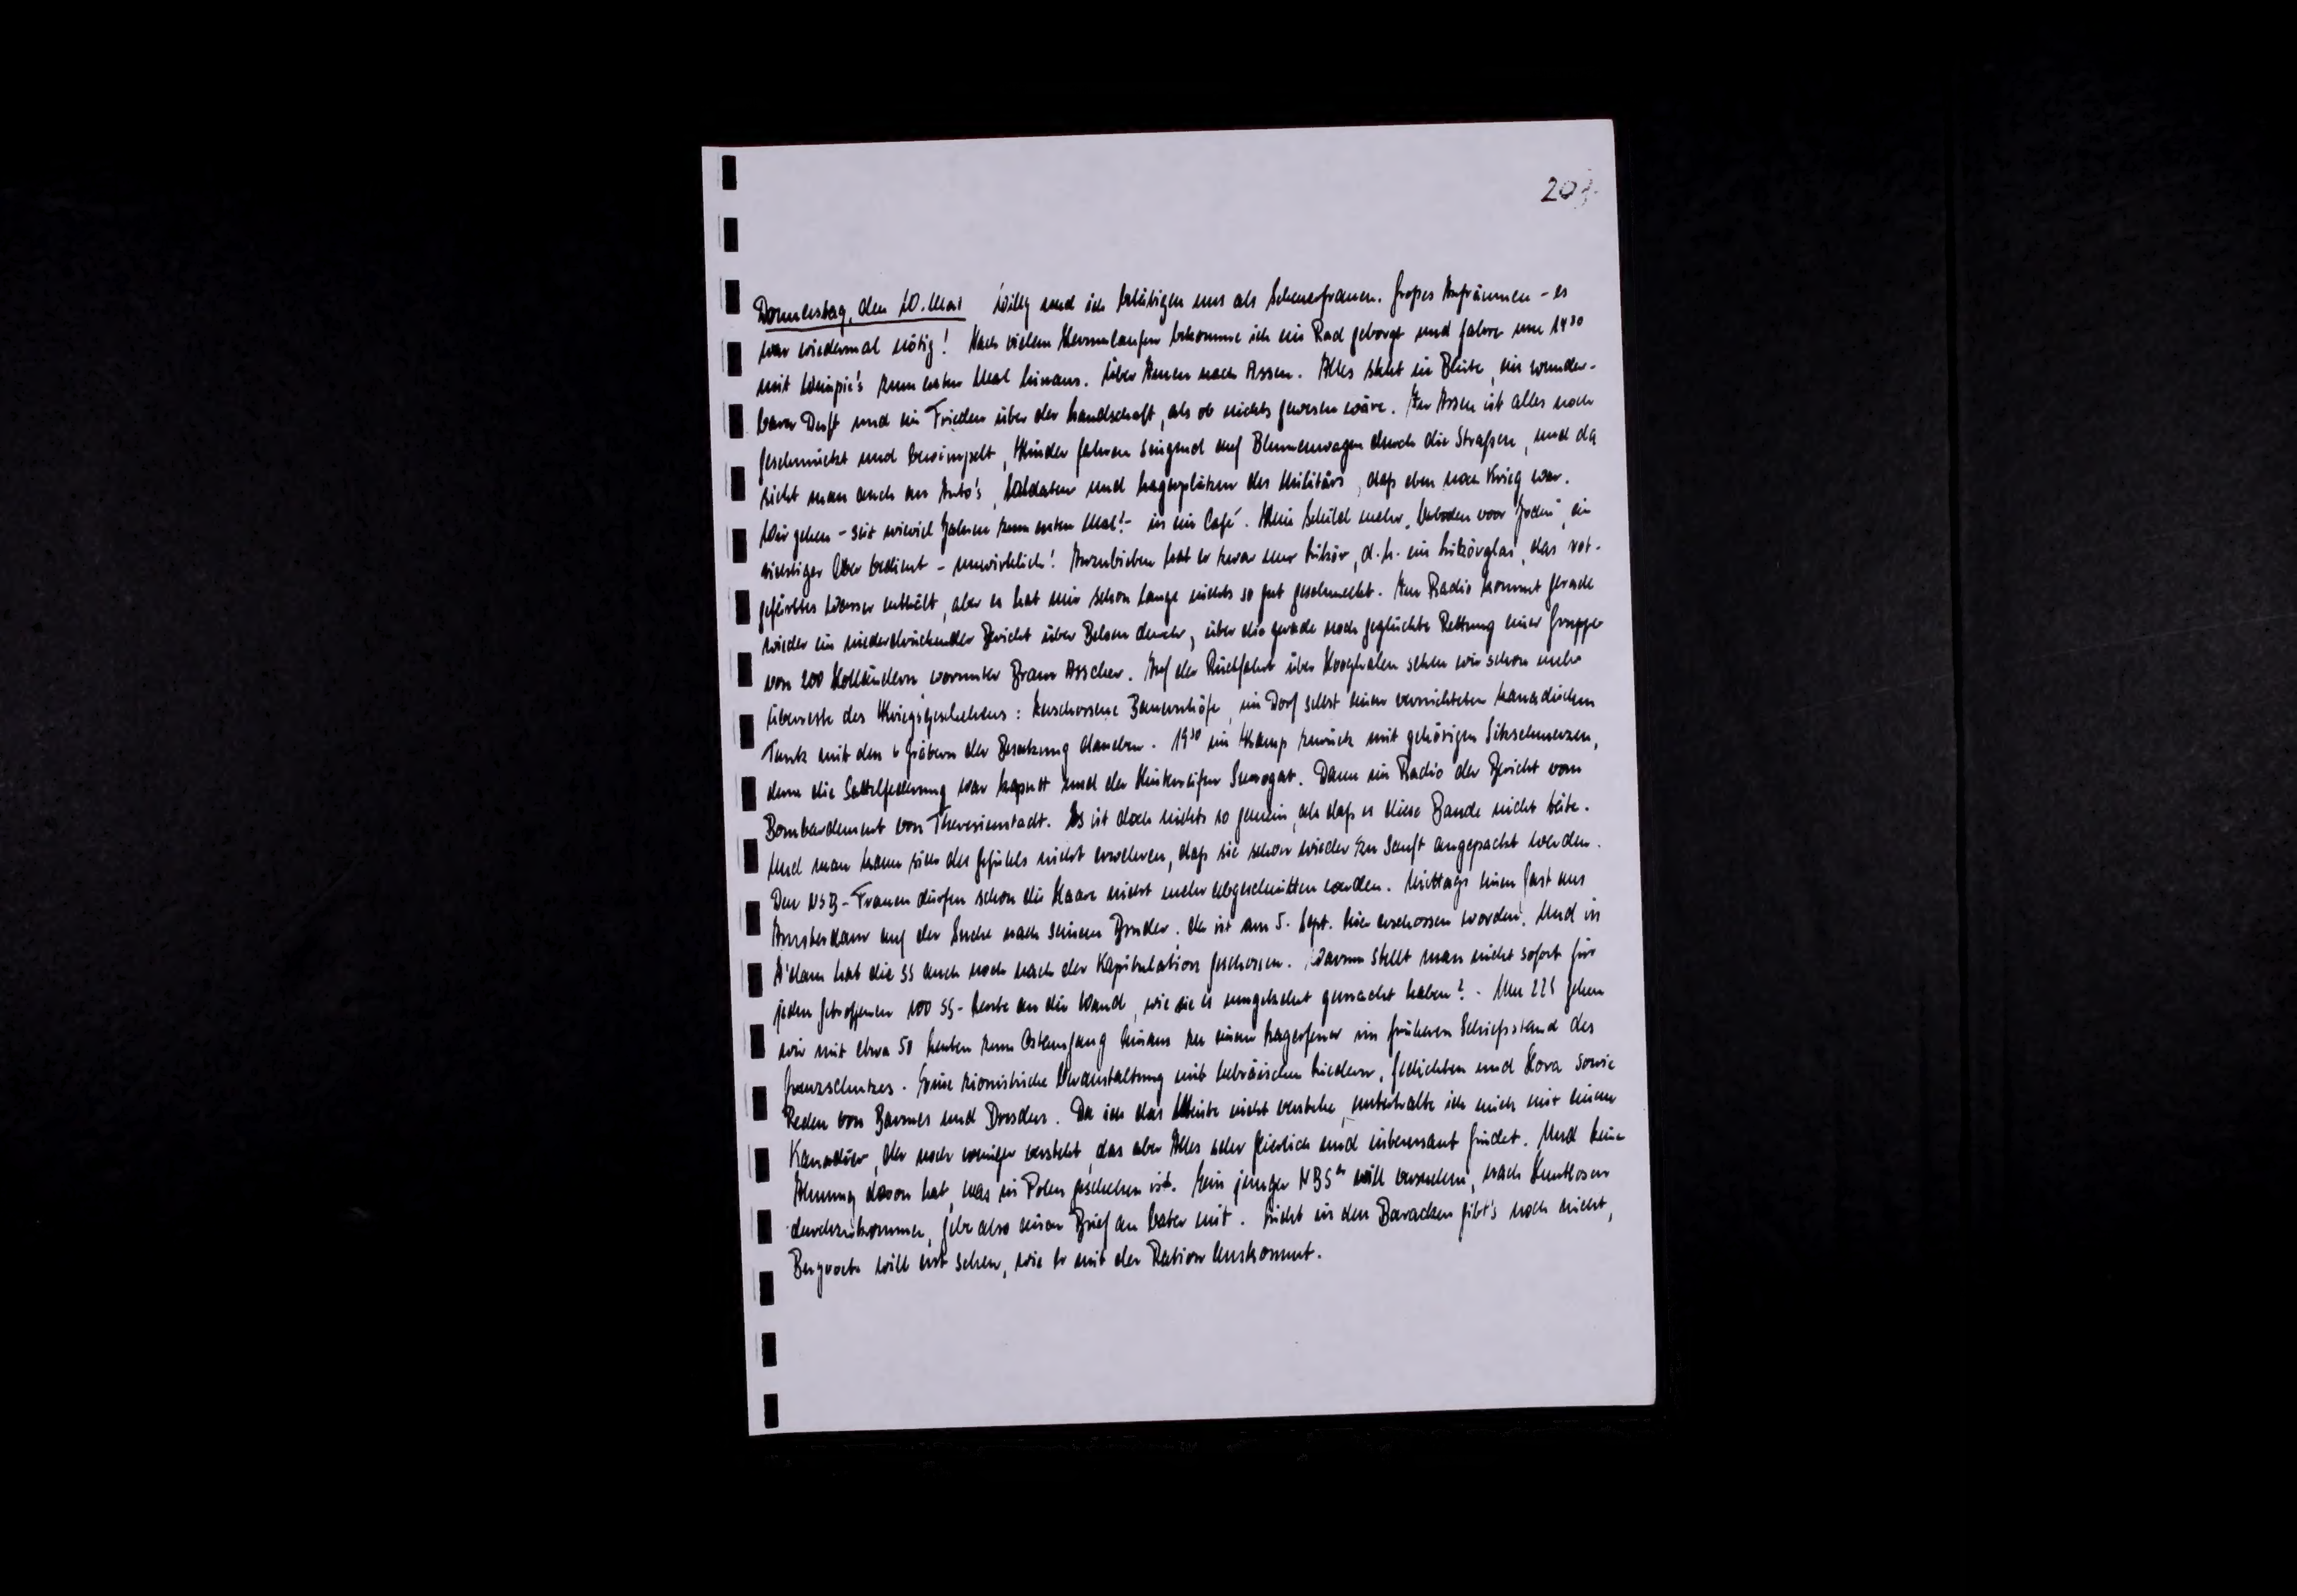 207.
Donnerstag, den 10. Mai Willy und ich betätigen uns als Scheuerfrauen. Großes Aufräumen - es
war wiedermal nötig! Nach vielem Herumlaufen bekomme ich ein Rad geborgt und fahre um 14³⁰
mit zum ersten Mal hinaus. Über Amen nach Assen. Alles steht in Blüte, ein wunder-
barer Duft und ein Frieden über der Landschaft, als ob nichts gewesen wäre. In Assen ist alles noch
geschmückt und bewimpelt, Kinder fahren singend auf Blumenwagen durch die Straßen, und da
sieht man auch an Auto's, Soldaten und Lagerplätzen des Militärs, daß eben noch Krieg war.
Wir gehen - seit wieviel Jahren zum ersten Mal! - in ein Café. Kein Schild mehr „Verboden voor Joden", ein
richtiger Ober bedient - unwirklich! Anzubieten hat er zwar nur Likör, d.h. ein Likörglas, das rot-
gefärbtes Wasser enthält, aber es hat mir schon lange nichts so gut geschmeckt. Im Radio kommt gerade
wieder ein niederdrückender Bericht über Belsen durch, über die gerade noch geglückte Rettung einer Gruppe
von 200 Holländern worunter Bram Asscher. Auf der Rückfahrt über Hooghalen sehen wir schon mehr
Überreste des Kriegsgeschehens: Zerschossene Bauernhöfe, im Dorf selbst einen vernichteten kanadischen
Tank mit den 4 Gräbern der Besatzung daneben. 19³⁰ im Kamp zurück mit gehörigen Sitzschmerzen,
denn die Sattelfederung war kaputt und der Hinterreifen Surrogat. Dann im Radio der Bericht vom
Bombardement von Theresienstadt. Es ist doch nichts so gemein, als daß es diese Bande nicht täte.
Und man kann sich des Gefühls nicht erwehren, daß sie schon wieder zu sanft angepackt werden.
Den NSB-Frauen dürfen schon die Haare nicht mehr abgeschnitten werden. Mittags einen Gast aus
Amsterdam auf der Suche nach seinem Bruder. Der ist am 5. Sept. hier erschossen worden. Und in
A'dam hat die SS auch noch nach der Kapitulation geschossen. Warum stellt man nicht sofort für
jeden Getroffenen 100 SS-Leute an die Wand, wie sie es umgekehrt gemacht haben? - Um gehen
wir mit etwa 50 Leuten zum Ostausgang hinaus zu einem Lagerfeuer im früheren Schießstand des
Grenzschutzes. Eine zionistische Veranstaltung mit hebräischen Liedern, Gedichten und Hora sowie
Reden von und Dresden. Da ich das Meiste nicht verstehe, unterhalte ich mich mit einem
Kanadier, der noch weniger versteht, das aber Alles sehr feierlich und interessant findet. Und keine
Ahnung davon hat, was in Polen geschehen ist. Ein junger NBSer will versuchen, nach
durchzukommen, gebe also einen Brief an Vater mit. Licht in den Baracken gibt's noch nicht,
will erst sehen, wie er mit der Ration auskommt.